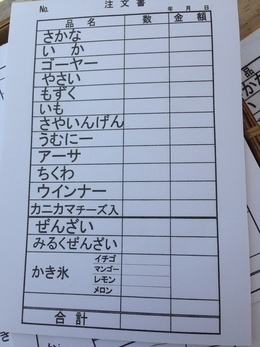 No. 注文書 年 月 日
品名 数 金額
さかな
いか
ゴーヤー
やさい
もずく
いも
さやいんげん
うむにー
アーサ
ちくわ
ウインナー
カニカマチーズ入
ぜんざい
みるくぜんざい
かき氷 イチゴ
マンゴー
レモン
メロン
合計